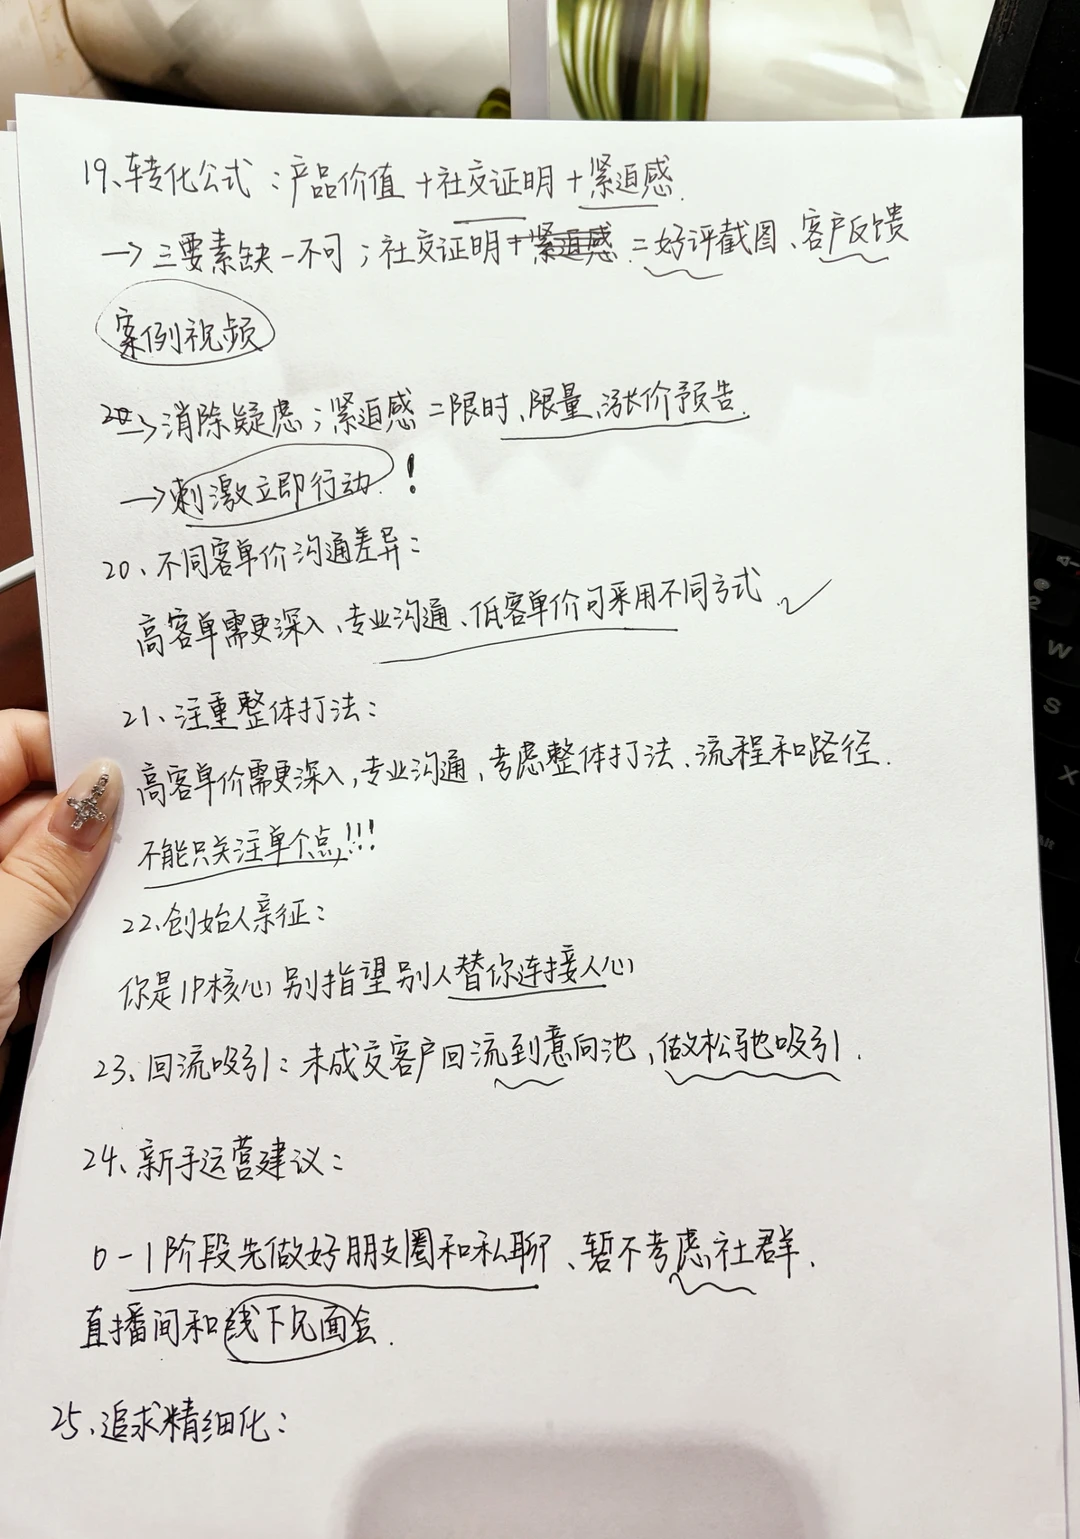 19、转化公式：产品价值+社交证明+紧迫感.
→三要素缺一不可；社交证明=好评截图、客户反馈
案例视频
→消除疑虑；紧迫感=限时、限量、涨价预告.
→刺激立即行动.！
20、不同客单价沟通差异：
高客单需更深入、专业沟通、低客单价可采用不同方式.
21、注重整体打法：
高客单价需更深入,专业沟通,考虑整体打法、流程和路径.
不能只关注单个点,!!!
22、创始人亲征：
你是IP核心别指望别人替你连接人心
23、回流吸引：未成交客户回流到意向池,做松驰吸引.
24、新手运营建议：
0-1阶段先做好朋友圈和私聊、暂不考虑社群.
直播间和线下见面会.
25、追求精细化：
W
S
X